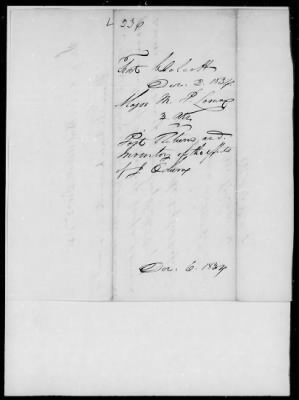 L 236
Fort Wolcott
Dec. 2. 1834
Major M. P. Lomax
3 Art.
Post Returns and
Inventory of the effects
of J
Dec. 6. 1834